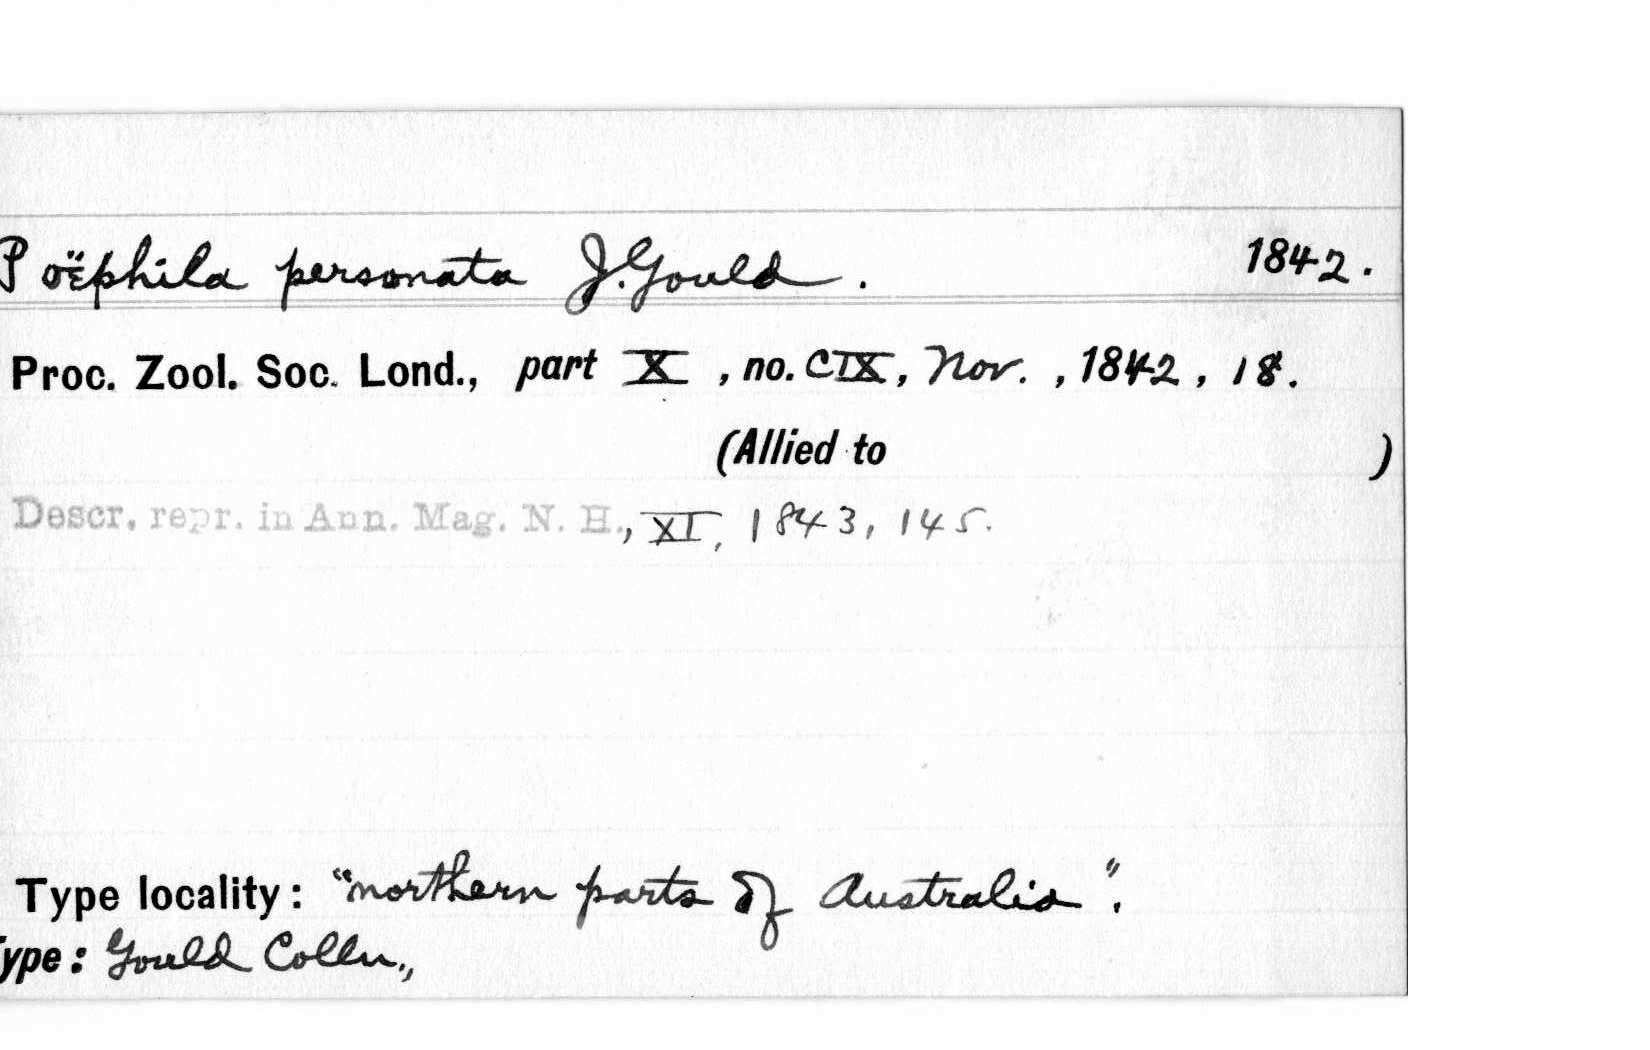 Poëphila personata J. Gould. 1842.
Proc. Zool. Soc. Lond., part X, no. CIX, Nov., 1842, 18.
(Allied to )
Descr. repr. in Ann. Mag. N. H., XI, 1843, 145.
Type locality: "northern parts of Australia".
Type: Gould Colln.,